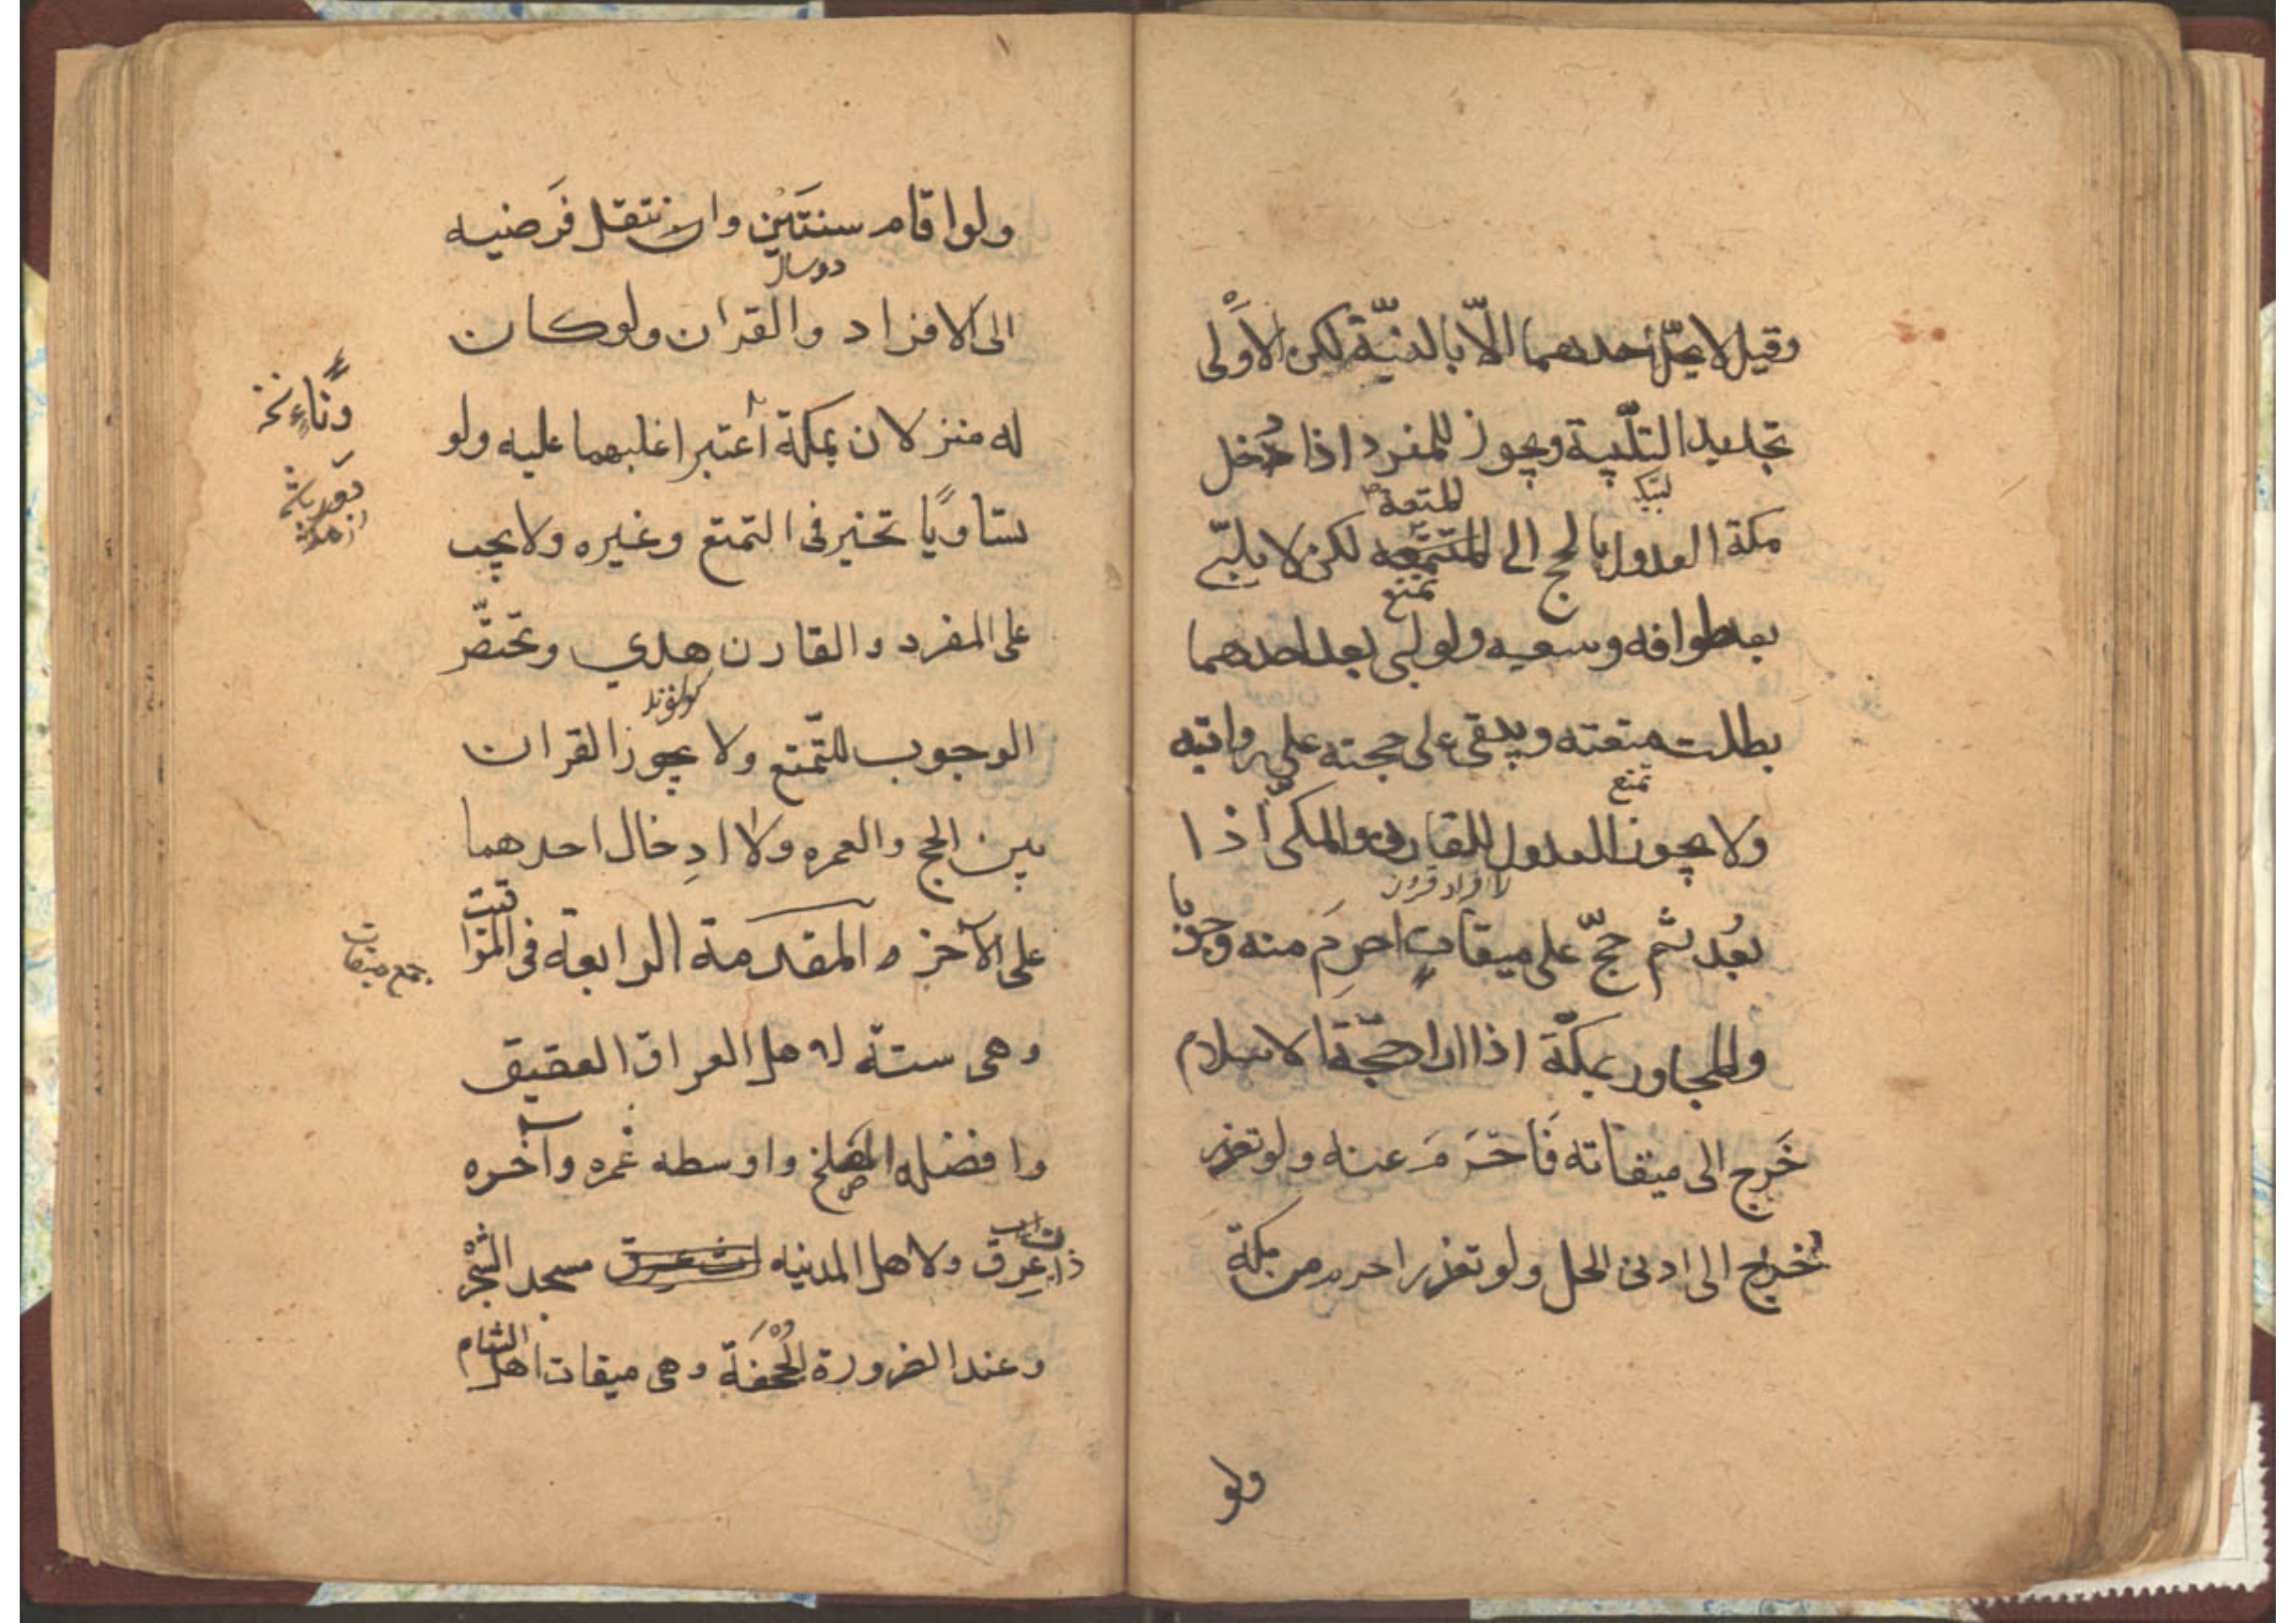 وقيل لا يحلّ أحدهما الّا بالنيّة لكن الأولى
تجديد التلّبية ويجوز للمفرد اذا دُخل
لبّيك
للمتعة
مكة العدول بالحج الى لكن لا يلبّي
تمتع
بعد طوافه وسعيه ولو لبى بعد احدهما
بطلت متعته ويبقى على حجته على رواتيه
تمتع
ولا يجوز العدول للقارن والمكيّ اذا
بعُد ثم حجّ على ميقاتٍ احرِمَ منه وجوبا
وللمجاور بمكّة اذا اراد حجّة الاسلام
خَرج الى ميقاته فَاحْرَمَ عنه ولو تعذر
خرج الى ادنى الحل ولو تعذر احرم من مكة
ولو
ولو اقام سنتَين وانتقل فَرضيه
دو سال
الى الافراد والقران ولو كان
له منزلان بمكة أعتبر اغلبهما عليه ولو
تساويًا تخير فى التمتع وغيره ولا يجب
على المفرد والقارن هدي وتختصّ
الوجوب للتّمتع ولا يجوز القران
بين الحج والعمره ولا ادِخال احدهما
على الآخر والمقدمة الرابعة فى المواقيت
جمع ميقات
وهى ستة لاهل العراق العقيق
وافضله المسلخ واوسطه غمره وآخره
ذات عِرق ولاهل المدنيه مسجد الشجر
وعند الضرورة الجُحْفَة وهى ميقات اهل الشام